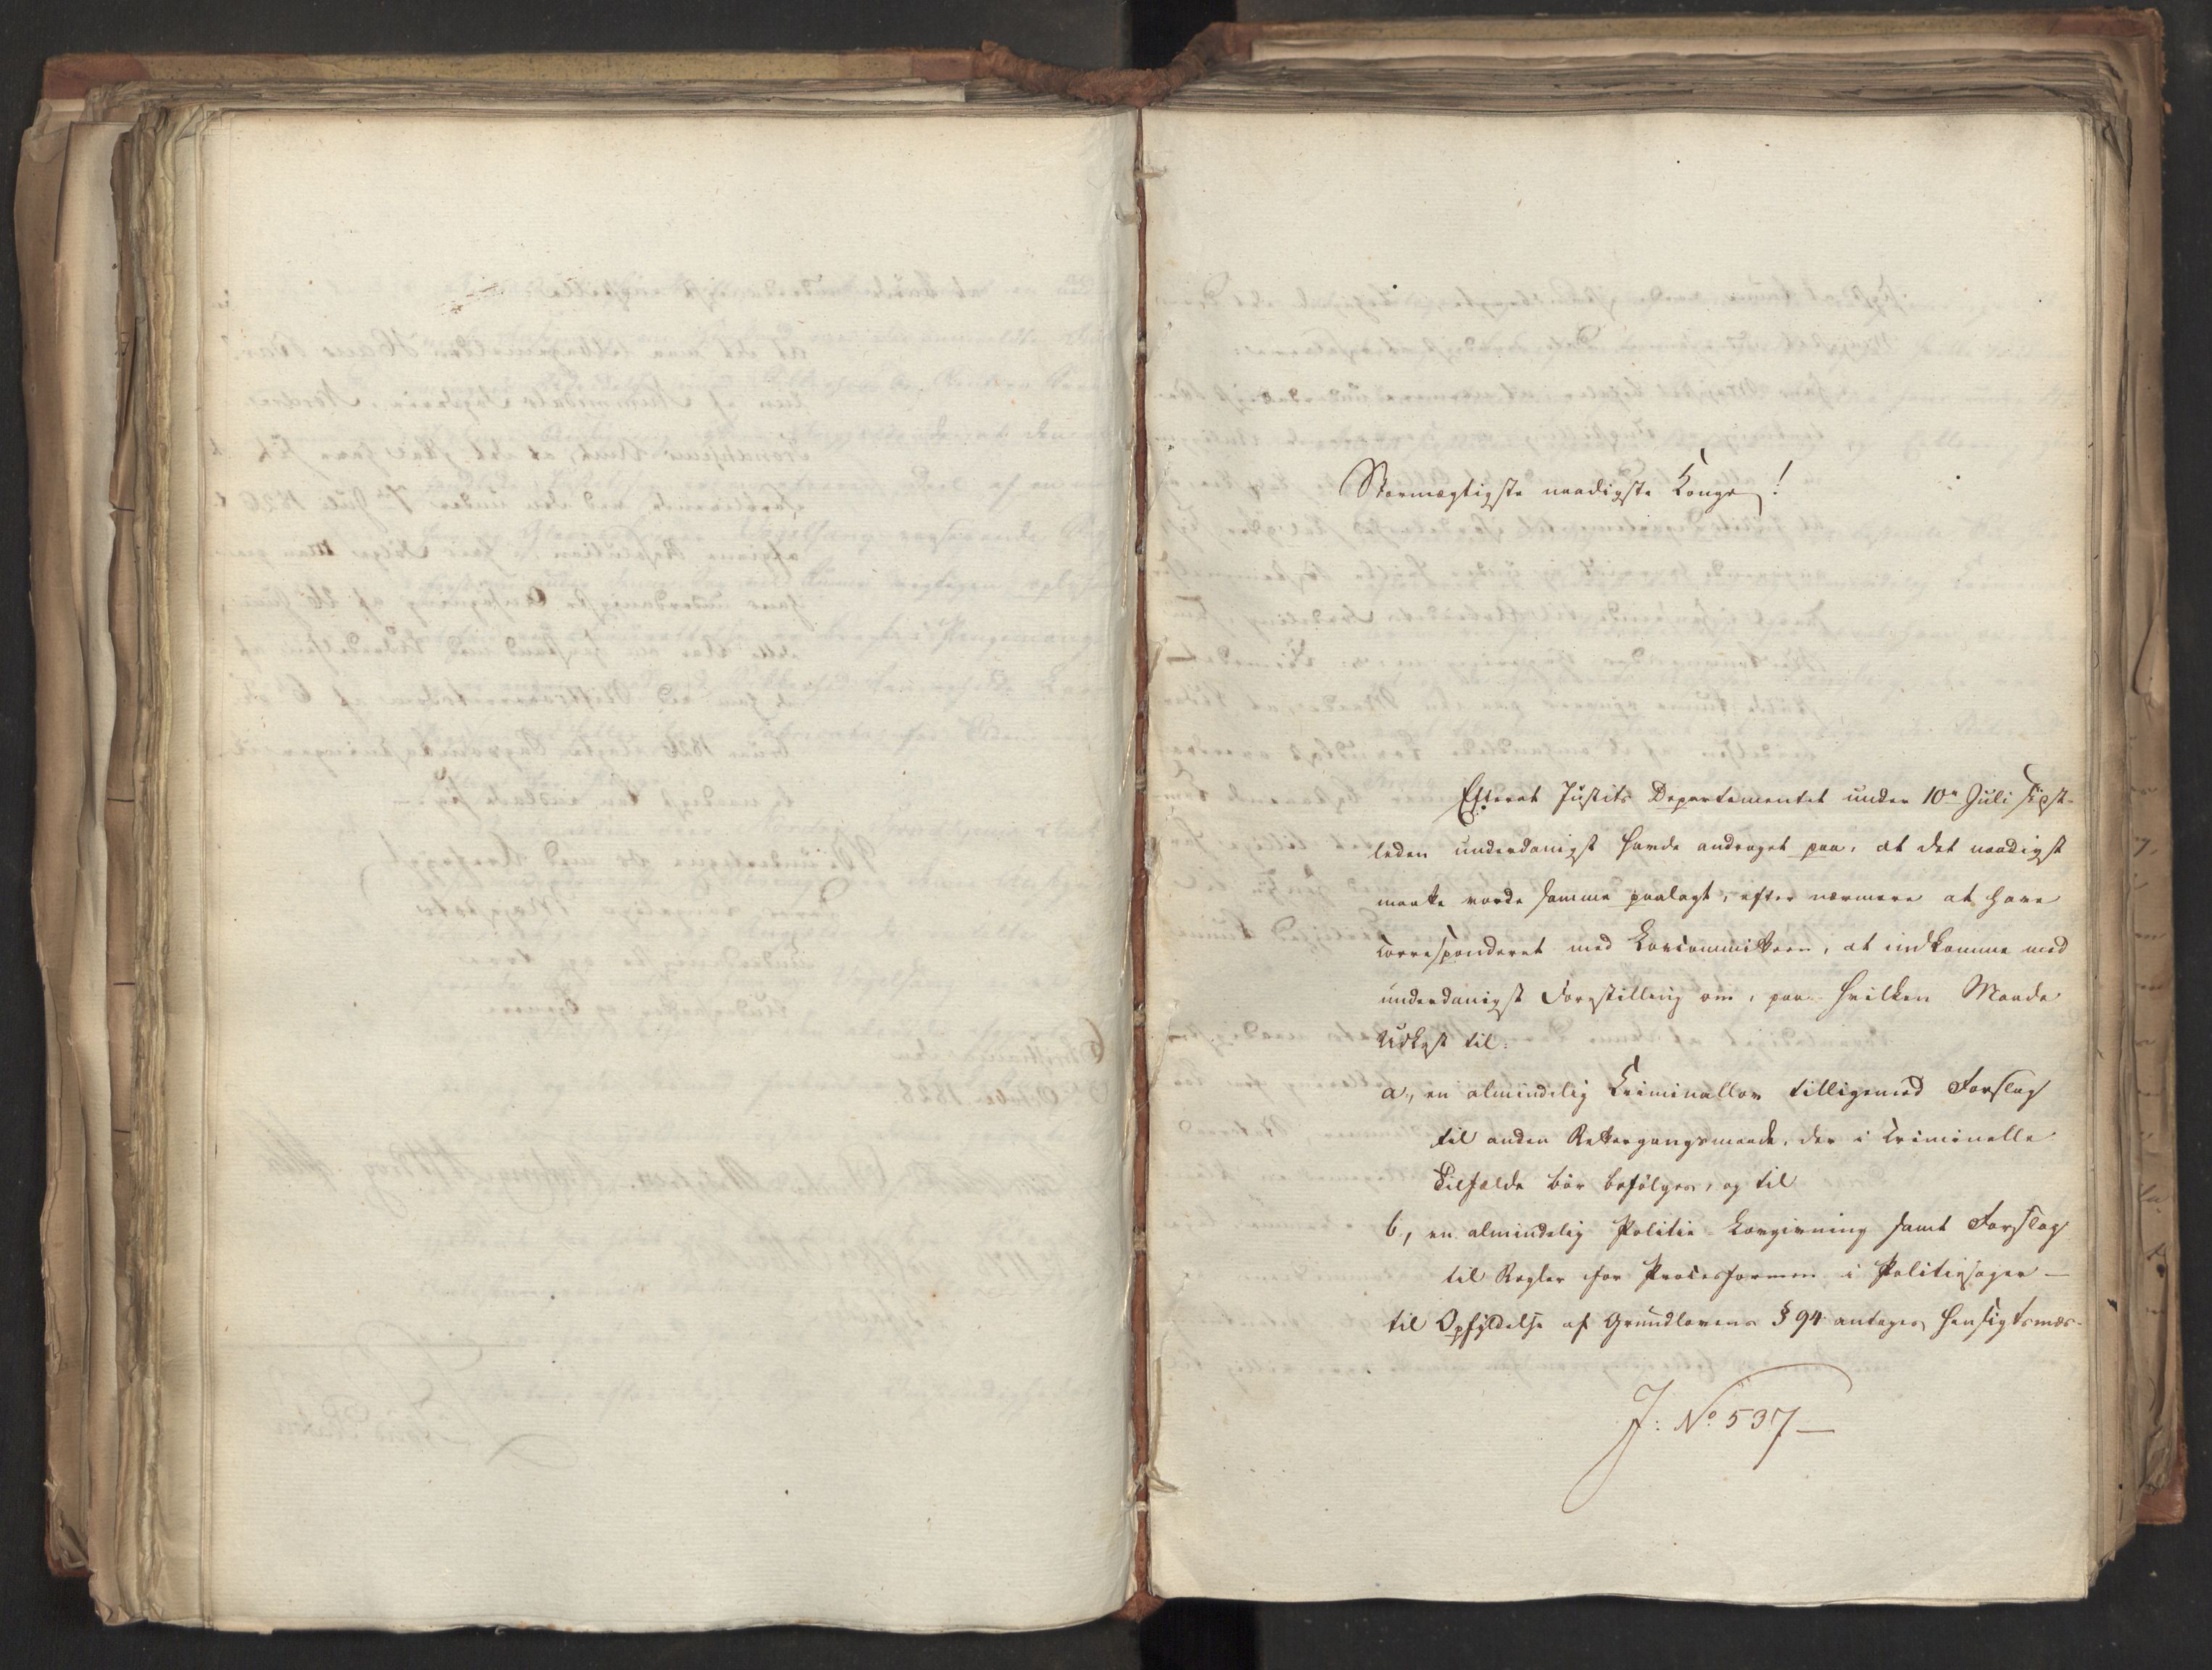 Stormægtigste naadigste Konge!
Efterat Justits Departementet under 10de Juli sidst-
leden underdanigst havde andraget paa, at det naadigst
maatte vorde samme paalagt, efter nærmere at have
correspponderet med Lovcommitteen, at indkomme med
underdanigst Forestilling om, paa hvilken Maade
Udkast til:
a, en almindelig Criminallov tilligemed Forslag
til anden Rettergangsmaade, der i criminelle
Tilfælde bør befølges, og til
b, en almindelig Politie-Lovgivning samt Forslag
til Regler for Procesformen i Politiesager —
til Opfyldelse af Grundlovens § 94 antages hensigtsmæs-
J: No. 537 —